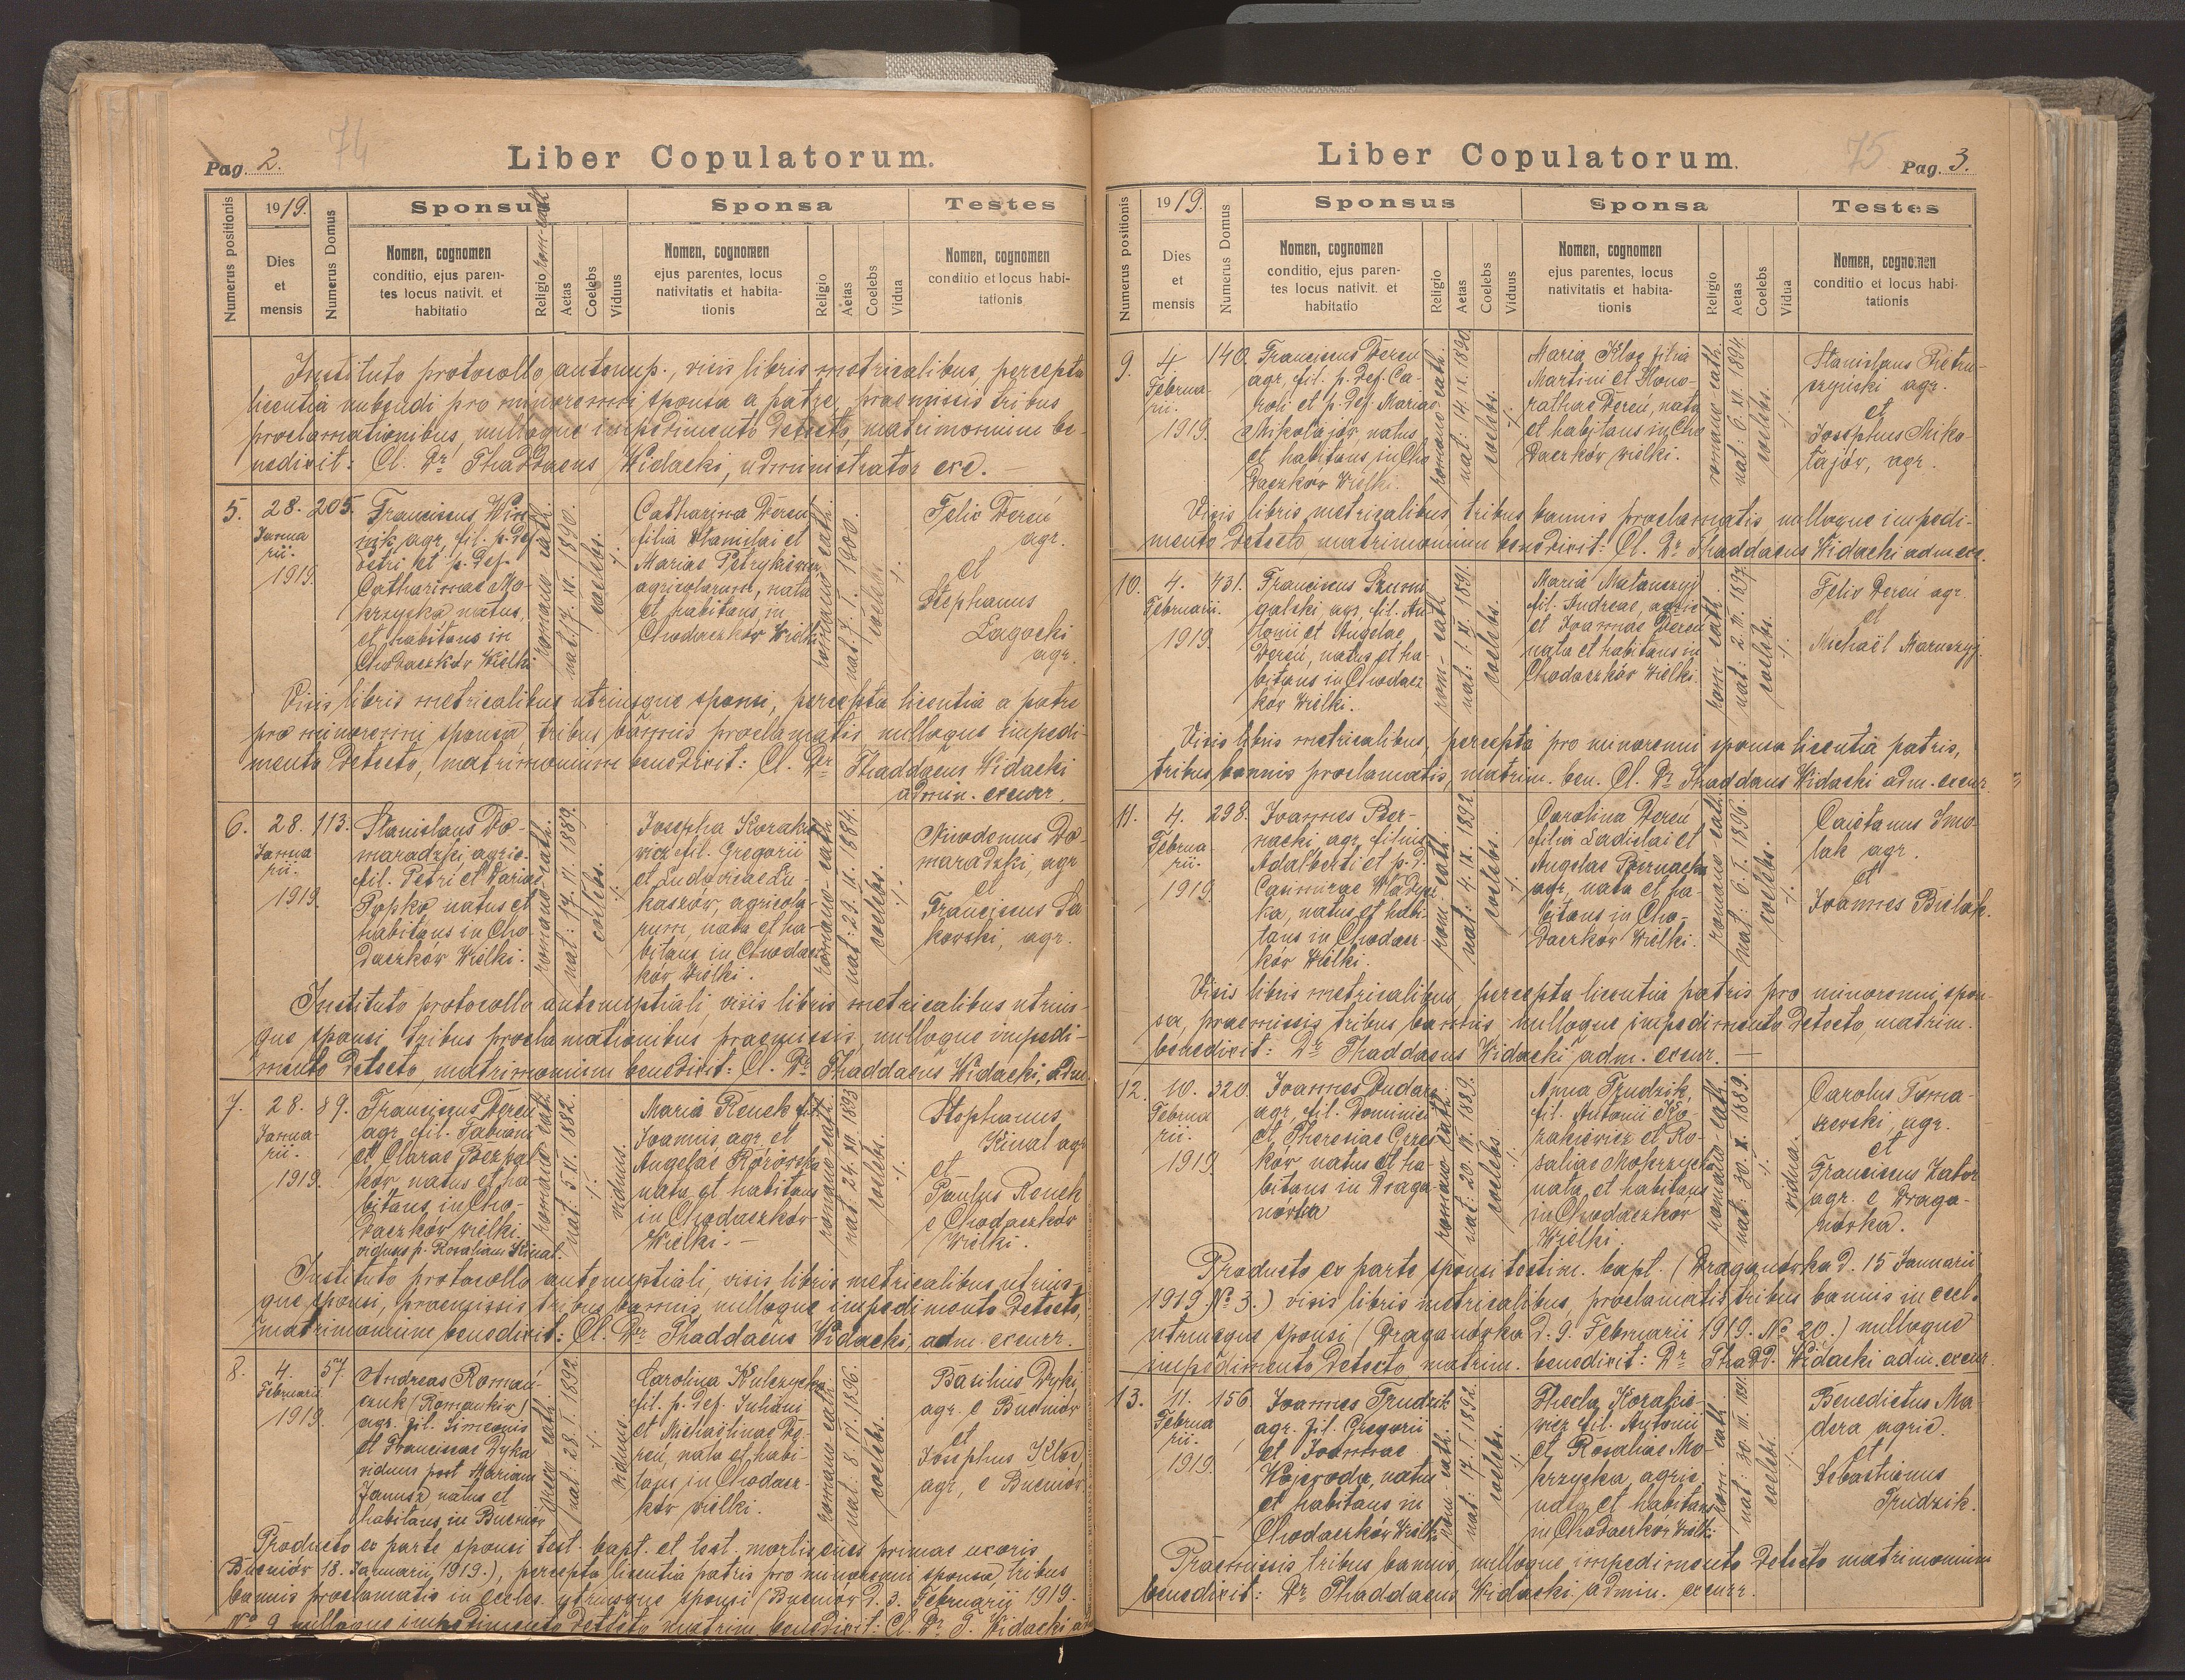 Pag. 2.
74
Liber Copulatorum.
Numerus positionis
1919.
Dies
et
mensis
Numerus Domus
Sponsus
Nomen, cognomen
conditio, ejus paren-
tes locus nativit. et
habitatio
Religio rom-cath
Aetas
Coelebs
Viduus
Sponsa
Nomen, cognomen
ejus parentes, locus
nativitatis et habita-
tionis
Religio
Aetas
Coelebs
Vidua
Testes
Nomen, cognomen
conditio et locus habi-
tationis
Instituto protocollo antenup., visis libris metricalibus, percepta
licentia nubendi pro minorenni sponsa a patre, praemissis tribus
proclamationibus, nulloque impedimento detecto, matrimonium be-
nedixit: Cl. Dr Thaddaeus Widacki, administrator exc. —
5.
28.
Janua
rii.
1919.
205.
Franciscus
nik agr, fil. p. def
Petri et p. def.
Catharinae Mo-
krzycka natus,
et habitans in
Chodaczków Wielki
romano cath.
coelebs.
Catharina Dereń
filia Stanislai et
Mariae
agricolarum, nata
et habitans in
Chodaczków Wielki
romano cath
nat: 7. I. 1900.
coelebs
Felix Dereń
agr.
et
Stephanus
Lagocki
agr.
Visis libris metricalibus utriusque sponsi, percepta licentia a patre
pro minorenni sponsa tribus bannis proclamatis, nulloque impedi-
mento detecto, matrimonium benedixit: Cl. Dr Thaddaeus Widacki
admin. excurr.
6.
28.
Janua
rii.
1919.
113.
Stanislaus Do-
maradzki, agric.
fil. Petri et Mariae
Popko natus et
habitans in Cho-
daczków Wielki.
romano-cath.
nat: 17. VI. 1889.
coelebs.
Josepha Korako
wicz fil. Gregorii
et Ludovicae Lu-
kaszów, agricola-
rum, nata et ha-
bitans in Chodacz
ków Wielki.
romano-cath
coelebs.
Nicodemus Do-
maradzki, agr
et
Franciscus Sa
kowski, agr.
Instituto protocollo antenuptiali, visis libris metricalibus utrius-
que sponsi, tribus proclamationibus praemissis, nulloque impedi-
mento detecto, matrimonium benedixit: Cl. Dr Thaddaeus Widacki, adm.
7.
28.
Janua-
rii.
1919.
89.
Franciscus Dereń
agr. fil. Fabiani
et Clarae
ków natus et ha
bitans in Cho-
daczków wielki.
viduus p. Rosaliam Kinal.
romano cath.
nat. 5. XI. 1882.
viduus.
Maria Renek fil.
Joannis, agr. et
Angelae
nata et habitans
in Chodaczków
Wielki. —
romano-cath.
nat. 24. XII. 1893
coelebs.
Stephanus
Kinal agr
et
Paulus Renek
e Chodaczków
Wielki.
Instituto protocollo antenuptiali, visis libris metricalibus utrius-
que sponsi, praemissis tribus bannis, nulloque impedimento detecto,
matrimonium benedixit: Cl. Dr Thaddaeus Widacki, adm. excurr.
8.
4.
Februarii
1919.
57.
Andreas Romań-
czuk (Romanków)
agr. fil. Simeonis
et Franciscae Dyka
viduus post Mariam
Janusz, natus et
habitans in Bucniów
graeco cath
nat: 28. I. 1892.
viduus
Carolina Kulczycka
fil. p. def. Juliani
et Michaëlinae De-
reń, nata et habi-
tans in Chodacz-
ków wielki.
romano cath
nat: 8. VI. 1896.
coelebs.
Basilius Dyki
agr. e Bucniów
et
Josephus Kloc,
agr, e Bucniów
Producto ex parte sponsi test. bapt. et test. mortis eius primae uxoris
(Bucniów 18. Januarii 1919.), percepta licentia patris pro minorenni sponsa, tribus
bannis proclamatis in eccles. utriusque sponsi (Bucniów d. 3. Februarii 1919.
No 9 nulloque impedimento detecto matrim. benedixit: Cl. Dr. T. Widacki
Liber Copulatorum.
75
Pag. 3.
Numerus positionis
1919.
Dies
et
mensis
Numerus Domus
Sponsus
Nomen, cognomen
conditio, ejus paren-
tes locus nativit. et
habitatio
Religio
Aetas
Coelebs
Viduus
Sponsa
Nomen, cognomen
ejus parentes, locus
nativitatis et habita-
tionis
Religio
Aetas
Coelebs
Vidua
Testes
Nomen, cognomen
conditio et locus habi-
tationis
9.
4
Februa
rii.
1919.
140.
Franciscus Dereń
agr, fil. p. def. Ca-
roli et p. def. Mariae
Mikołajów, natus
et habitans in Cho
daczków Wielki.
romano-cath.
nat: 14. IX. 1890.
coelebs.
Maria Kloc filia
Martini et Hono-
rathae Dereń, nata
et habitans in Cho
daczków wielki.
romano-cath.
nat: 6. XII. 1894.
coelebs.
Stanislaus Pietru-
szyński agr.
et
Josephus Miko-
łajów, agr.
Visis libris metricalibus tribus bannis proclamatis nulloque impedi-
mento detecto matrimonium benedixit: Cl. Dr Thaddaeus Widacki adm exc.
10.
4.
Februarii.
1919.
431.
Franciscus Szumi
galski agr, fil. An-
tonii et Angelae
Dereń, natus et ha-
bitans in Chodacz
ków Wielki.
rom-cath
nat: 1. XI. 1891.
coelebs.
Maria
fil. Andreae, agric
et Joannae Dereń
nata et habitans in
Chodaczków Wielki.
rom-cath.
nat: 2. VI. 1897.
coelebs.
Felix Dereń agr.
et
Michaël
Visis libris metricalibus, percepta pro minorenni sponsa licentia patris,
tribus bannis proclamatis, matrim. ben. Cl. Dr Thaddaeus Widacki adm. excur.
11.
4.
Februa-
rii.
1919.
298.
Joannes Ber-
nacki, agr, filius
Adalberti et p. d.
Casimirae
ka, natus et habi-
tans in Chodacz-
ków Wielki.
rom cath.
nat: 4. IX. 1892.
coelebs.
Carolina Dereń
filia Ladislai et
Angelae Bernacka
agr, nata et ha-
bitans in Cho-
daczków Wielki.
romano cath.
nat: 6. I. 1896.
coelebs.
Caietanus Smo-
lak agr.
et
Joannes Bielak.
Visis libris metricalibus, percepta licentia patris pro minorenni spon-
sa, praemissis tribus bannis nulloque impedimento detecto, matrim.
benedixit: Dr Thaddaeus Widacki adm. excur. —
12.
10.
Februa
rii.
1919
320.
Joannes Dudarz
agr, fil. Dominici
et Theresiae Grzes
ków natus et ha-
bitans in Draga
nówka
romano cath.
coelebs.
Anna Trudzik,
fil. Antonii Ko-
rakiewicz et Ro-
saliae Mokrzycka
nata et habitans
in Chodaczków
Wielki.
romano-cath
nat: 30. X. 1889.
vidua.
Carolus Toma-
szewski, agr.
et
Franciscus Zator
agr. e Draga-
nówka.
Producto ex parte sponsi testim. bapt. (Draganówka d. 15 Januarii
1919 No 3.) visis libris metricalibus, proclamatis tribus bannis in eccl.
utriusque sponsi (Draganówka d. 9. Februarii 1919. No 20.) nulloque
impedimento detecto matrim. benedixit: Dr Thadd. Widacki adm. excur.
13.
11.
Februa
rii.
1919.
156.
Joannes Trudzik
agr. fil. Gregorii
et Joannae
Wojewoda, natus
et habitans in
Chodaczków Wielki
rom-cath.
nat: 17. I. 1892.
coelebs.
Thecla Korakie-
wicz fil. Antonii
et Rosaliae Mo
krzycka, agric
nata et habitans
in Chodaczków Wielki
rom. cath
nat: 30. III. 1891.
coelebs.
Benedictus Ma
dera agric.
et
Sebastianus
Trudzik.
Praemissis tribus bannis, nulloque impedimento detecto matrimonium
benedixit: Dr Thaddaeus Widacki admin. excurr.